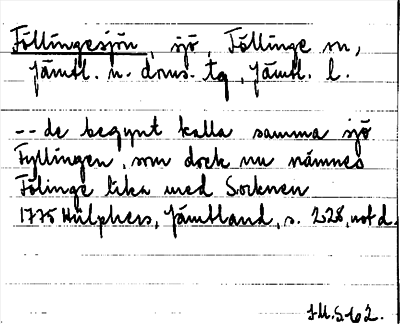 Föllingesjön, sjö, Föllinge sn,
Jämtl. n. doms. tg, Jämtl. l.
-- de begynt kalla samma sjö
Fyllingen, som dock nu nämnes
Fölinge lika med Socknen
1775 Hülphers, Jämtland, s. 228, not d.
J.M. 5 62.